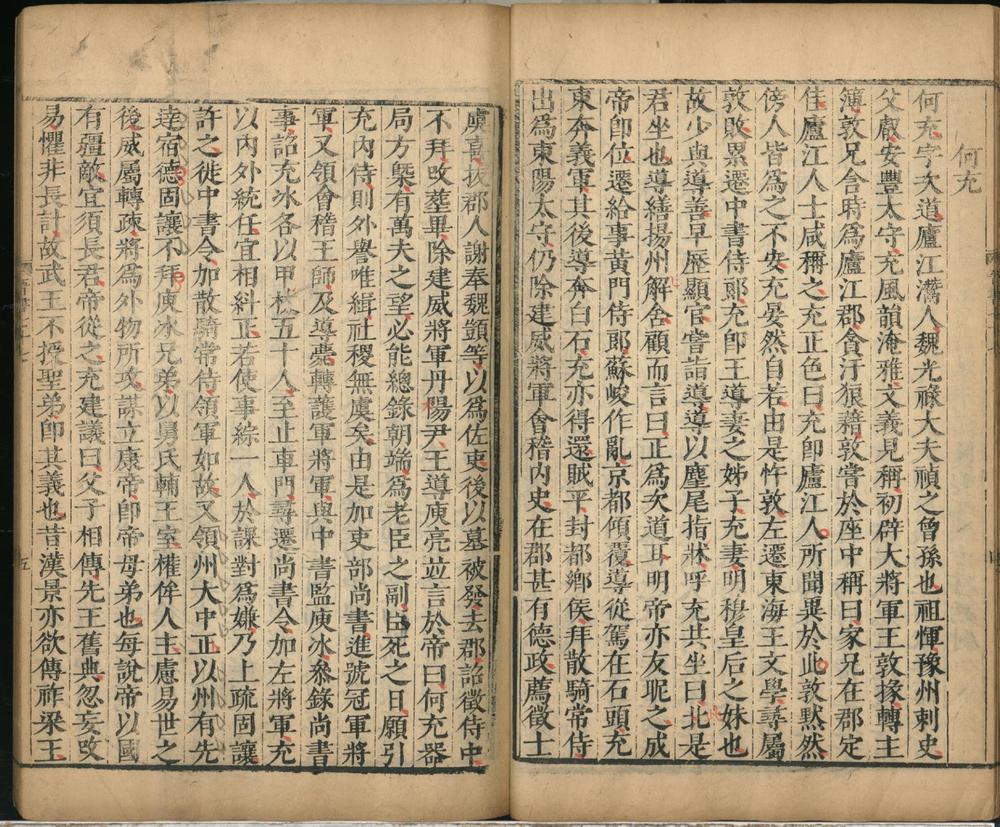 何充
何充字次道廬江灊人魏光祿大夫禎之曾孫也祖惲豫州刺史
父叡安豐太守充風韻淹雅文義見稱初辟大將軍王敦掾轉主
簿敦兄含時為廬江郡貪汙狼藉敦嘗於座中稱曰家兄在郡定
佳廬江人士咸稱之充正色曰充即廬江人所聞異於此敦黙然
傍人皆為之不安充晏然自若由是忤敦左遷東海王文學尋屬
敦敗累遷中書侍郎充即王導妻之姊子充妻明穆皇后之妹也
故少與導善早歷顯官嘗詣導導以麈尾指牀呼充共坐曰此是
君坐也導繕揚州解舍顧而言曰正為次道耳明帝亦友昵之成
帝即位遷給事黃門侍郎蘇峻作亂京都傾覆導從駕在石頭充
東奔義軍其後導奔白石充亦得還賊平封都鄉侯拜散騎常侍
出為東陽太守仍除建威將軍會稽內史在郡甚有德政薦徵士
虞喜拔郡人謝奉魏顗等以為佐吏後以墓被發去郡詔徵侍中
不拜改葬畢除建威將軍丹陽尹王導庾亮並言於帝曰何充器
局方槩有萬夫之望必能總錄朝端為老臣之副臣死之日願引
充內侍則外譽唯緝社稷無虞矣由是加吏部尚書進號冠軍將
軍又領會稽王師及導薨轉護軍將軍與中書監庾冰參錄尚書
事詔充冰各以甲杖五十人至止車門尋遷尚書令加左將軍充
以內外統任宜相糾正若使事綜一人於課對為嫌乃上疏固讓
許之徙中書令加散騎常侍領軍如故又領州大中正以州有先
達宿德固讓不拜庾冰兄弟以舅氏輔王室權侔人主慮易世之
後戚屬轉疎將為外物所攻謀立康帝即帝母弟也每說帝以國
有疆敵宜須長君帝從之充建議曰父子相傳先王舊典忽妄改
易懼非長計故武王不授聖弟即其義也昔漢景亦欲傳祚梁王
五